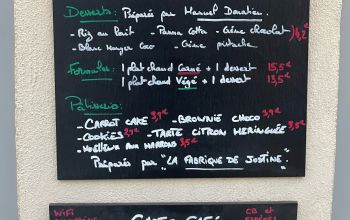 Desserts: Préparés par Manuel Donatien
- Riz au lait - Panna Cotta - Crème chocolat )4,2€
- Blanc Manger Coco - Crème pistache
Formules: 1 plat chaud Carné + 1 dessert 15,5€
1 plat chaud Végé + 1 dessert 13,5€
Pâtisserie:
- CARROT CAKE 3,9€ - BROWNIE CHOCO 3,9€
- COOKIES 2,9€ - TARTE CITRON MERINGUÉE 3,5€
- MOELLEUX AUX MARRONS 3,5€
PRÉPARÉS PAR "LA FABRIQUE DE JOSTINE".
WiFi
CB et